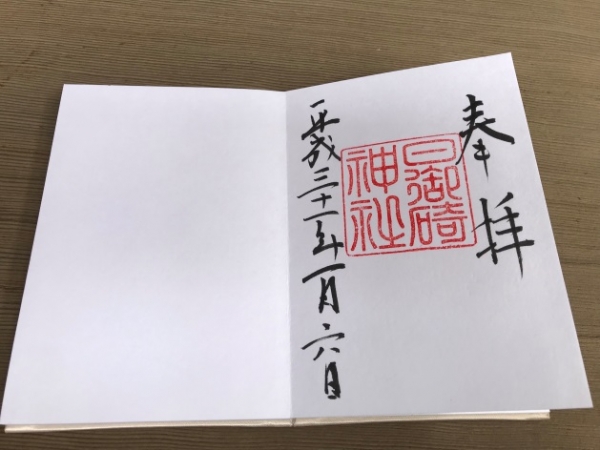 奉拝
日御碕
神社
平成三十一年一月六日